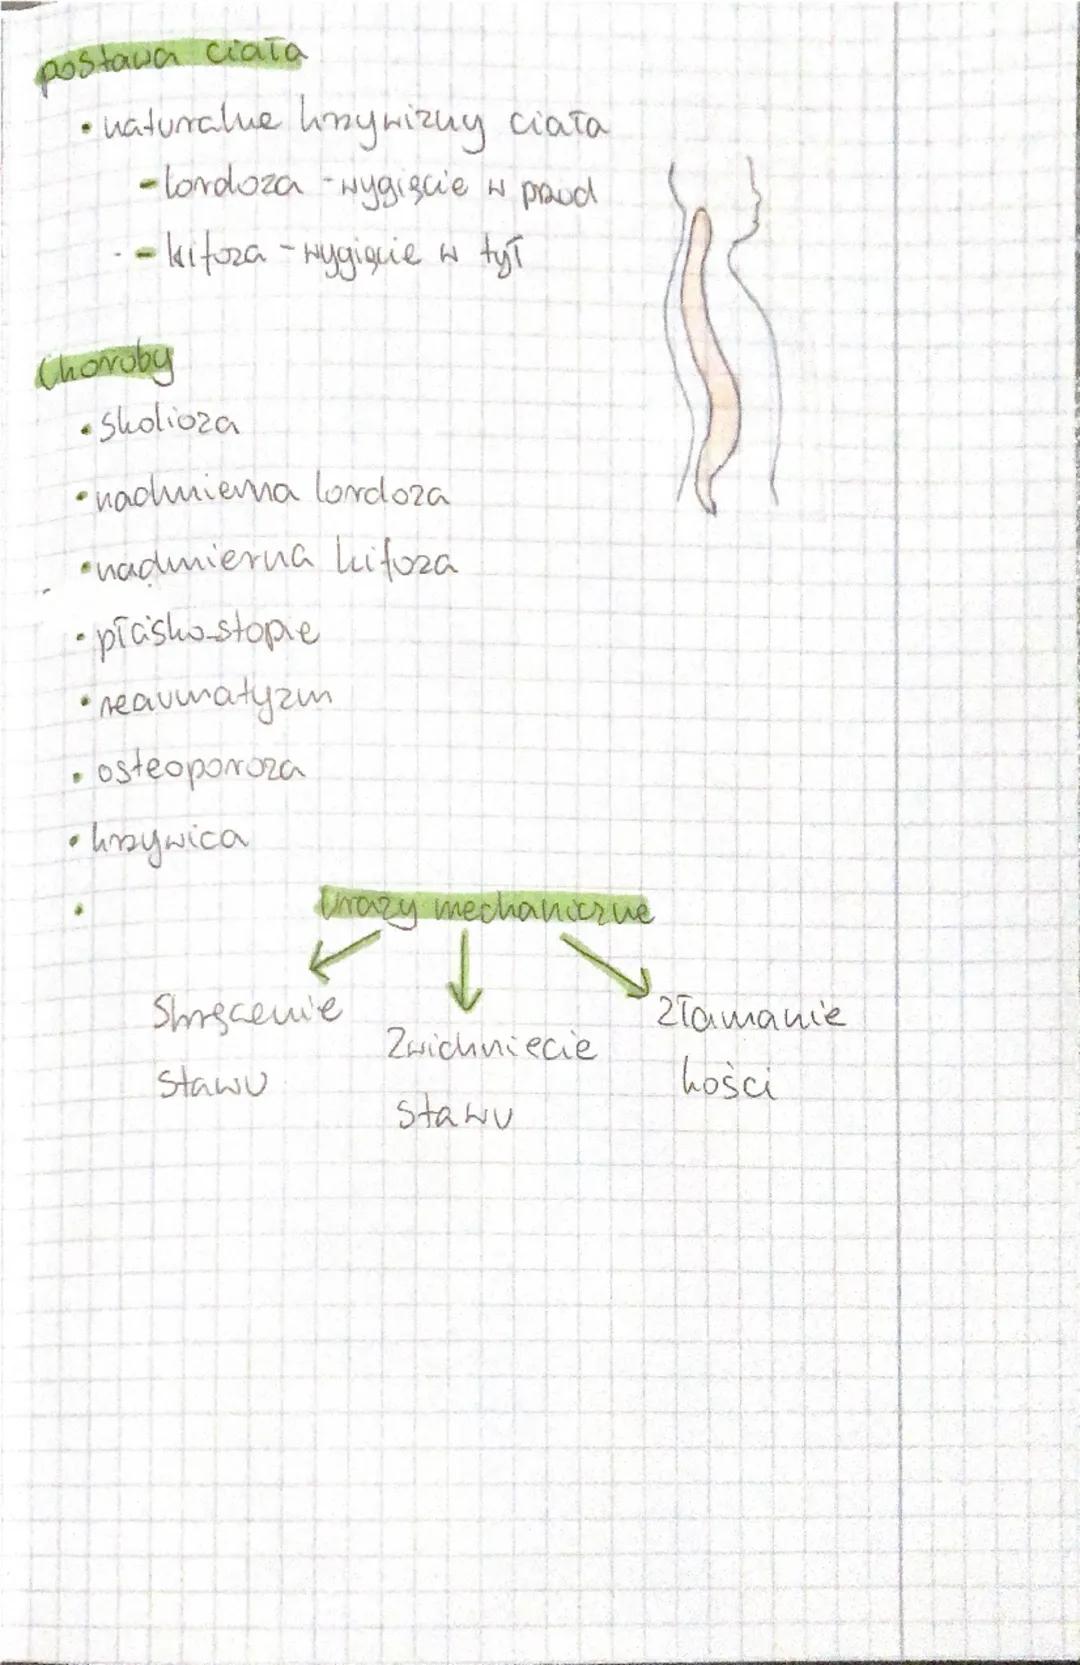 postawa ciała
• naturalne krzywizny ciała
- lordoza - wygięcie w przód
- kifoza - wygięcie w tył
Choroby
• Skolioza
• nadmierna lordoza
• nadmierna kifoza
• płaskostopie
• reaumatyzm
• osteoporoza
• krzywica
•
Urazy mechaniczne
Skręcenie
stawu
Zwichniecie
stawu
złamanie
kości